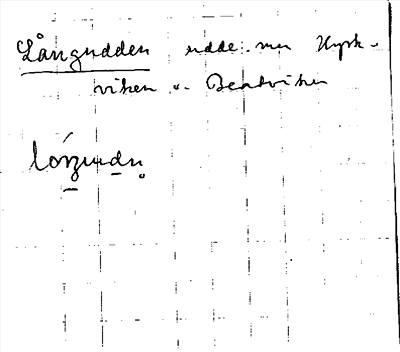 Långudden udde mn Kyrk-
viken o. Beatviken
lóŋudn̥